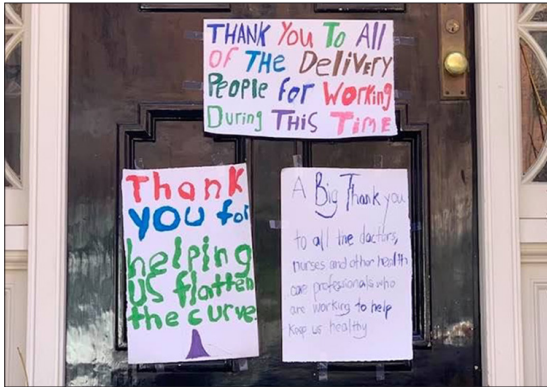 THANK You To All
OF THE DeliVERY
People for Working
During THIS TIME
Thank
you for
helping
us flatten
the curve.
A Big Thank you
to all the doctors,
nurses and other health
care professionals who
are working to help
keep us healthy